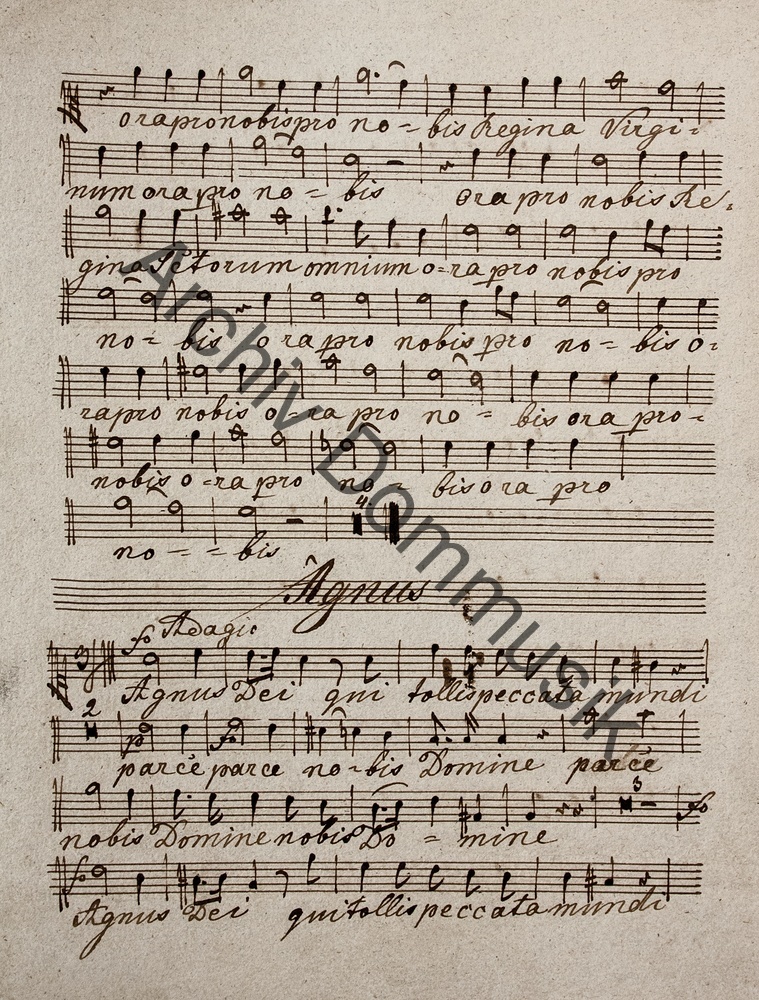 ora pro nobis pro no - bis Regina Virgi=
num ora pro no = bis ora pro nobis Re=
gina Sctorum omnium o=ra pro nobis pro
no= bis o ra pro nobis pro no= bis o=
ra pro nobis o=ra pro no = bis ora pro=
nobis o=ra pro no= bis ora pro
4.
no - = bis
Agnus
fo Adagio
3
Agnus Dei qui tollis peccata mundi
2
p fo
parce parce no-bis Domine parce
3
fo
nobis Domine nobis Do = mine
fo
Agnus Dei qui tollis peccata mundi
Archiv Dommusik